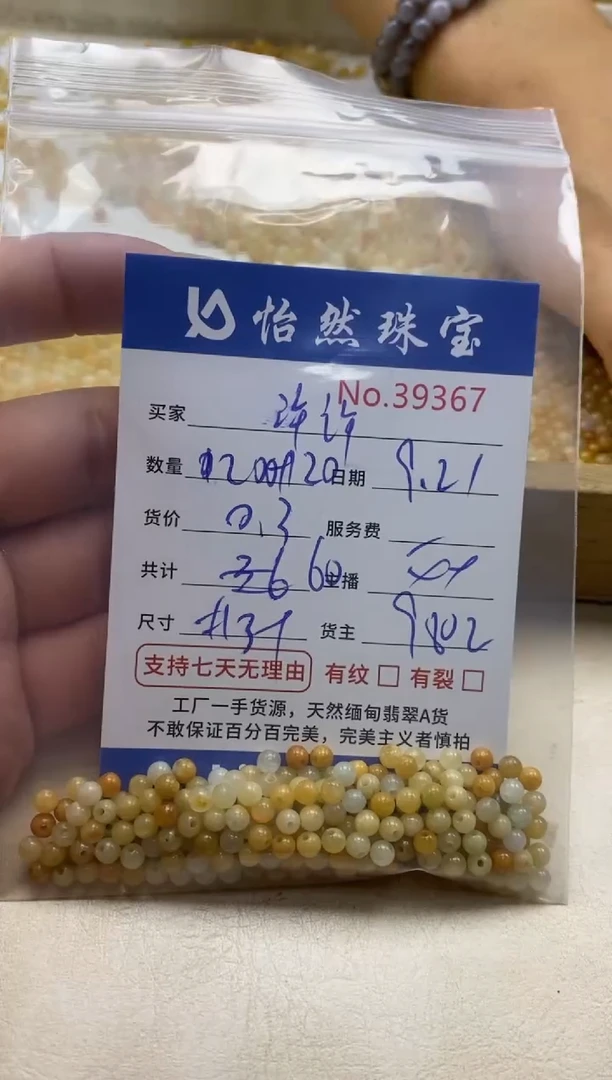 怡然珠宝
No.39367
买家 许许
数量 日期 9.21
货价 0.3 服务费
共计 主播
尺寸 货主 9802
支持七天无理由 有纹 有裂
工厂一手货源，天然缅甸翡翠A货
不敢保证百分百完美，完美主义者慎拍